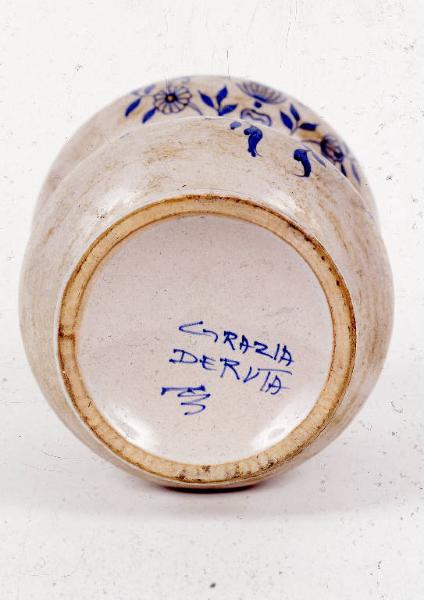 GRAZIA
DERUTA